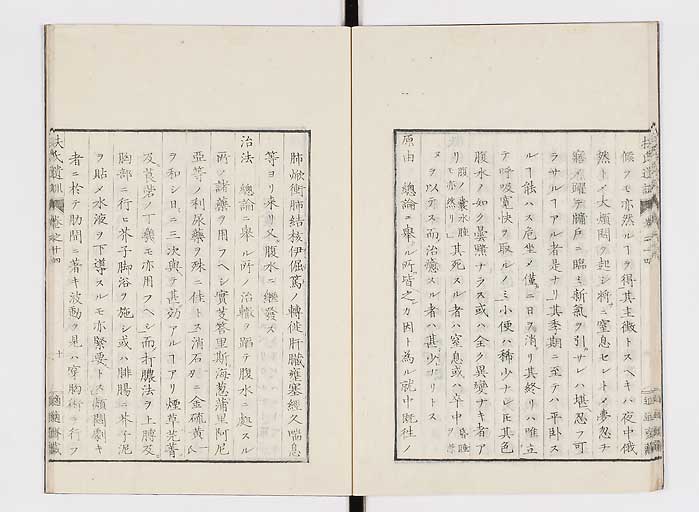 候フモ亦然ルヿヲ得其主徴トスヘキハ夜中俄
然トメ大煩悶ヲ起シ将ニ窒息セントメ夢忽チ
寤メ牖戸ニ臨ミ新氣ヲ引サレハ堪忍フ可
ラサルヿアル者是ナリ其季期ニ至テハ平臥ス
ルヿ能ハス危坐メ僅ニ日ヲ消リ其終リハ唯立
テ呼吸寛快ヲ取ルノミ小便ハ稀少ナレ𪜈其色
腹水ノ如ク曇黯ナラス或ハ全ク異變ナキ者ア
リ腹ノ囊水腫モ亦然リ其死スル者ハ窒息或ハ卒中
ヌヲ以テス而治癒スル者ハ甚少ナリトス
原由 總論ニ舉ル所皆之カ因ト為ル就中既往ノ
扶氏遺訓 卷之十四
肺焮衝肺結核伊倔篤ノ轉徙肝臓壅塞經久喘息
等ヨリ来リ又腹水ニ繼發ス
治法 總論ニ舉ル所ノ治轍ヲ蹈テ腹水ニ處スル
所ノ諸藥ヲ用フヘシ實芰荅里斯海葱蒲里阿尼
亞等ノ利尿藥ヲ殊ニ佳トス消石ニ金硫黄
ヲ和シ日ニ二三次與テ甚効アルヿアリ煙草芫菁
及莨菪ノ丁幾モ亦用フヘシ而打膿法ヲ上膊及
胸部ニ行ヒ芥子脚浴ヲ施シ或ハ腓腸ニ芥子泥
ヲ貼メ水液ヲ下導スルモ亦緊要トス煩悶劇キ
者ニ於テ肋間ニ著キ波動ヲ見ハ穿胸術ヲ行フ
扶氏遺訓 卷之十四 十